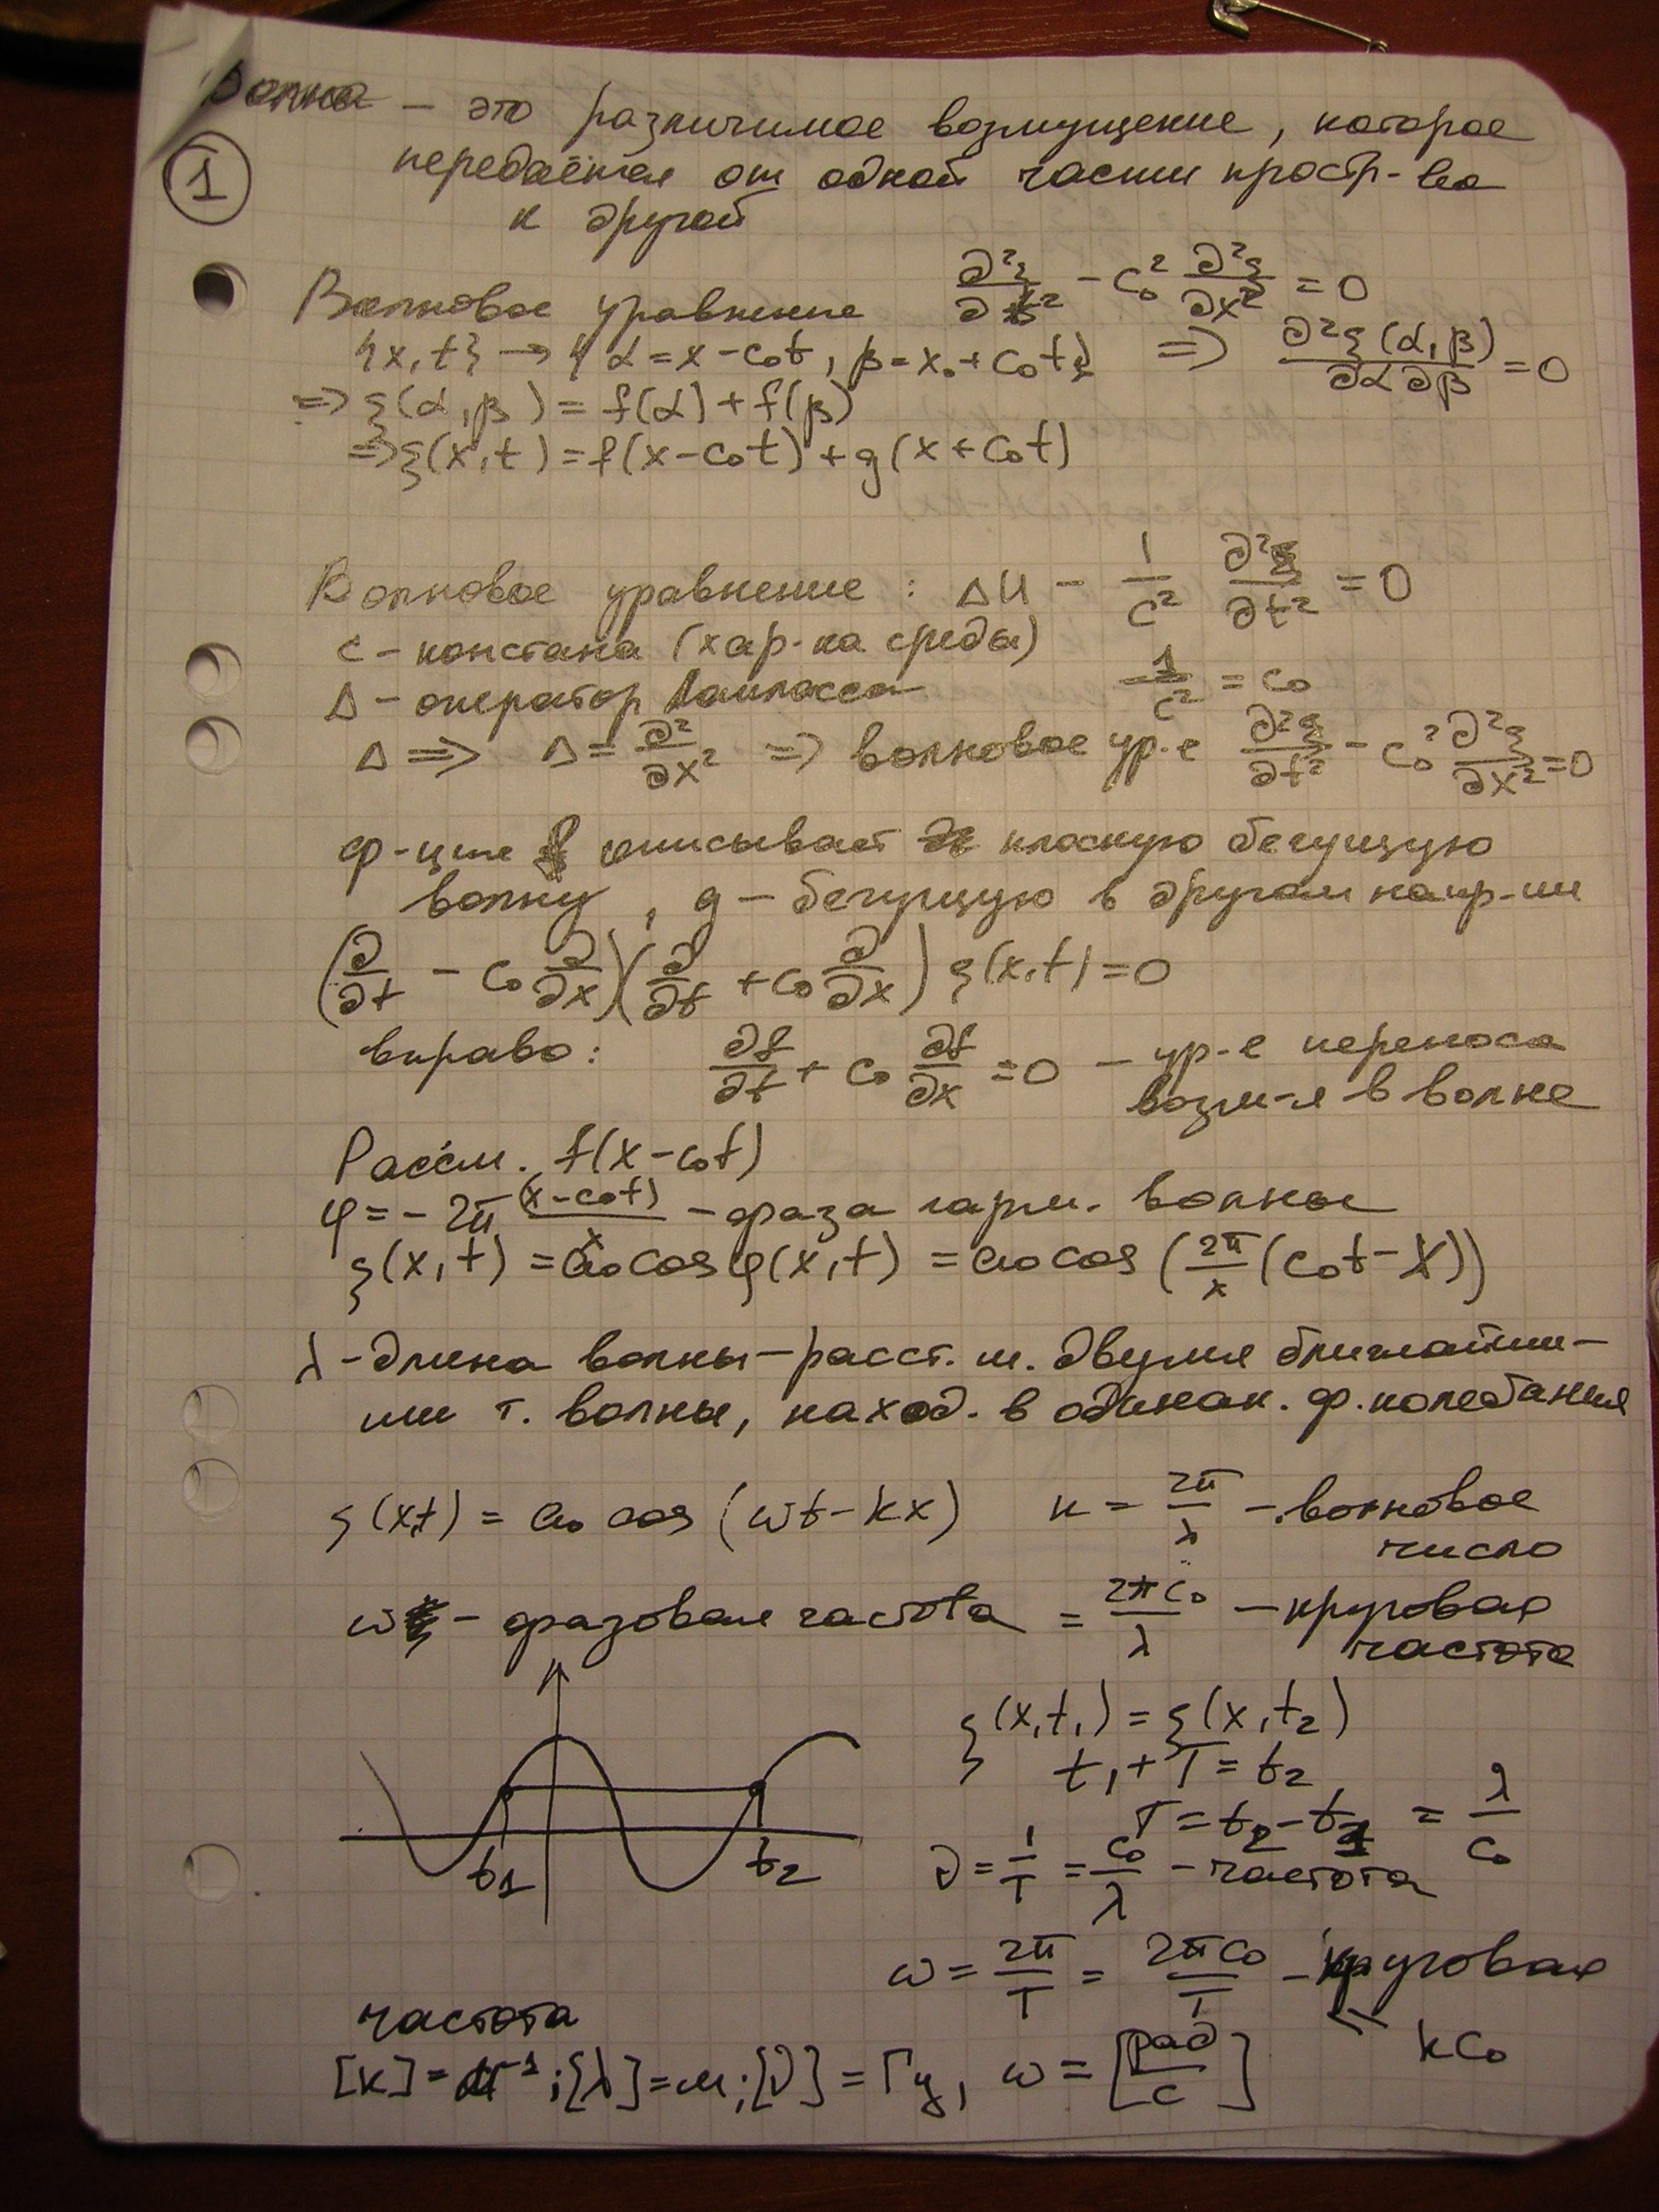 Волна — это различимое возмущение, которое
передаётся от одной части простр-ва
1
к другой
Волновое уравнение ∂²ξ/∂t² - c₀² ∂²ξ/∂x² = 0
{x,t} → {α = x - c₀t, β = x + c₀t} ⇒ ∂²ξ(α,β)/∂α∂β = 0
⇒ ξ(α,β) = f(α) + f(β)
⇒ ξ(x,t) = f(x-c₀t) + g(x+c₀t)
Волновое уравнение: ΔU - 1/c² ∂²ξ/∂t² = 0
c - констана (хар-ка среды)
Δ - оператор Лапласса 1/c² = c₀
Δ ⇒ Δ = ∂²/∂x² ⇒ волновое ур-е ∂²ξ/∂t² - c₀² ∂²ξ/∂x² = 0
ф-ция f описывает плоскую бегущую
волну, g - бегущую в другом напр-ии
(∂/∂t - c₀ ∂/∂x)(∂/∂t + c₀ ∂/∂x) ξ(x,t) = 0
вправо: ∂f/∂t + c₀ ∂f/∂x = 0 - ур-е переноса
возм-я в волне
Рассм. f(x-c₀t)
φ = -2π (x-c₀t)/λ - фаза гарм. волны
ξ(x,t) = a₀cosφ(x,t) = a₀cos(2π/λ (c₀t-x))
λ - длина волны - расст. м. двумя ближайши-
ми т. волны, наход. в одинак. ф. колебания
ξ(x,t) = a₀ cos(ωt-kx) k = 2π/λ - волновое
число
ω - фазовая частота = 2πc₀/λ - круговая
частота
ξ(x,t₁) = ξ(x,t₂)
t₁+T = t₂
T = t₂-t₁ = λ/c₀
t₁ t₂
ν = 1/T = c₀/λ - частота
ω = 2π/T = 2πc₀/T - круговая
частота
kc₀
[k] = м⁻¹; [λ] = м; [ν] = Гц, ω = [рад/с]